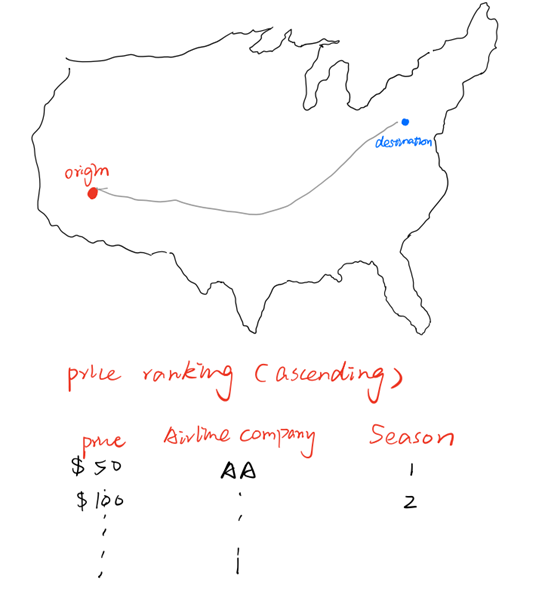 origin
destination
price ranking (ascending)
price Airline company Season
$50 AA 1
$100 2